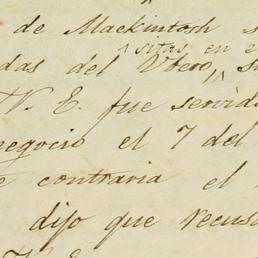 de Mackintosh s
sitas en e
das del Utero, su
V. E. fue servid
negocio el 7 del
e contraria el
dijo que recus